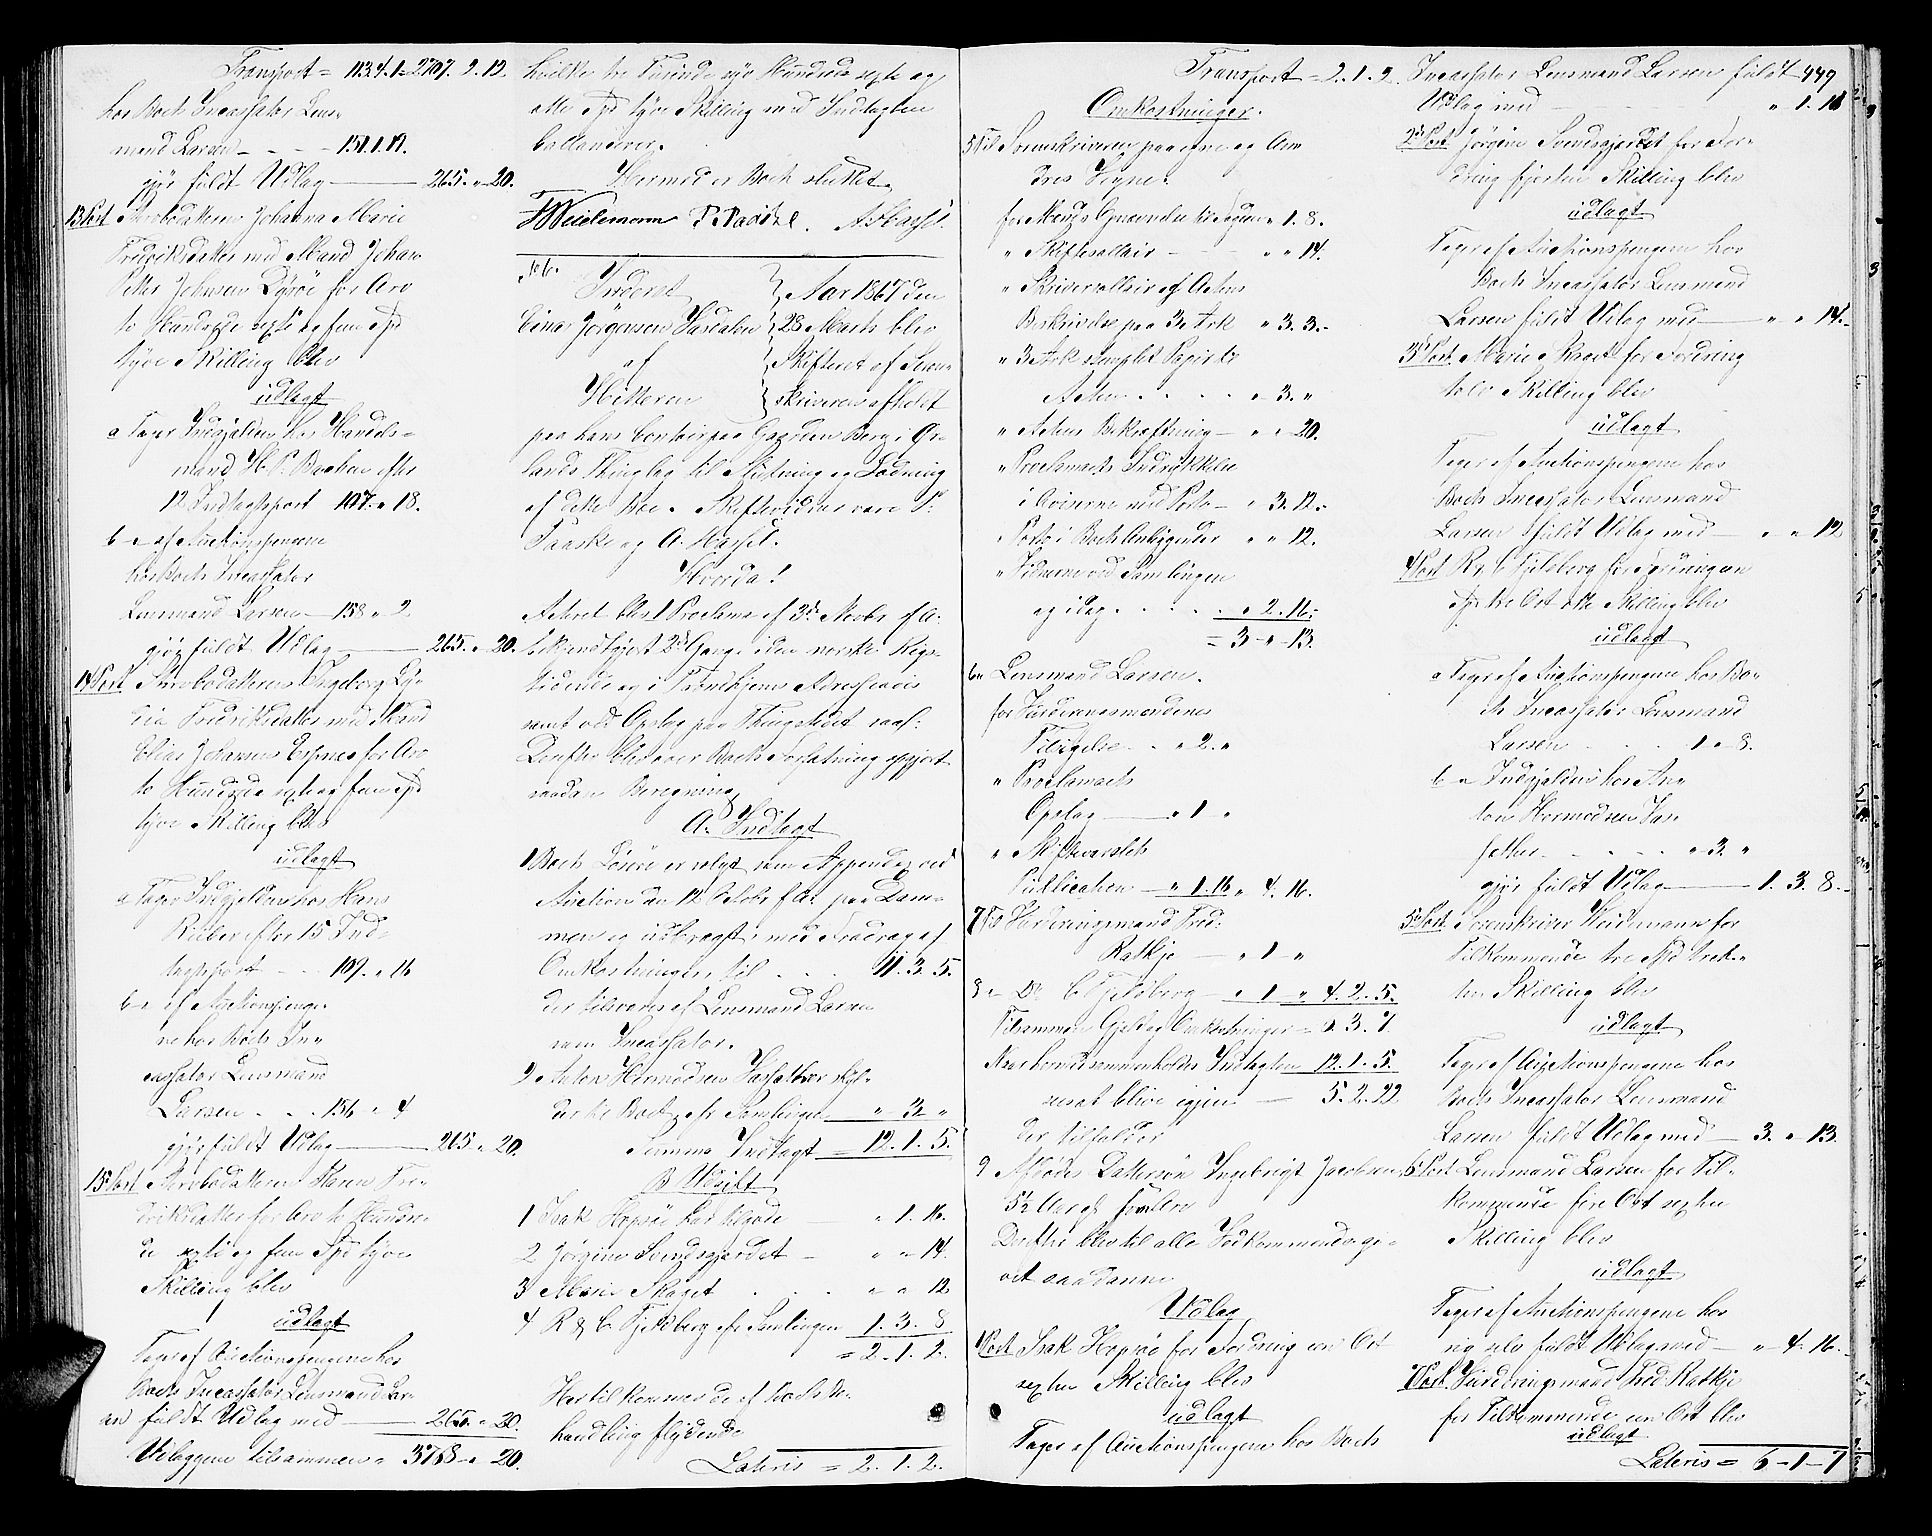 Transport = 113.4.1 = 2707. 2. 12.
hos Boets Incassator Lens-
mand Larsen - - - 151.1.19.
gjør fuldt Udlag 265. " 20.
13 Post Arvedatteren Johanna Marie
Fredriksdatter med Mand Johan
Petter Johnsen Dyrøe for Arv
to Hundrede sexti og fem Spd
tyve Skilling blev
udlagt
a Tager Indgjælden hos Handels-
mand H. P. Backen efter
12 Indtagtspost 107. " 18.
b " af Auctionspengene
hos Boets Incassator
Lensmand Larsen 158 " 2
gjør fuldt Udlag 265. " 20.
14 Post Arvedatteren Ingeborg
Fredriksdatter med Mand
Elias Johansen Espnes for Arv
to Hundrede sexti og fem Spd
tyve Skilling blev
udlagt
a Tager Indgjælden hos Hans
efter 15 Ind-
tagtspost 109. " 16
b " af Auctionspenge-
ne hos Boets In-
cassator Lensmand
Larsen . . . 156 " 4
gjør fuldt Udlag 265 " 20.
15 Post Arvedatteren Karen Fre-
driksdatter for Arv to Hundre-
de sexti og fem Spd tyve
Skilling blev
udlagt
Tager af Auctionspengene hos
Boets Incassator Lensmand Lar-
sen fuldt Udlag med 265. " 20.
Udlæggene tilsammen = 3768 " 20.
hvilke tre Tusinde syv Hundrede sexti og
otte Spd tyve Skilling med Indtagten
ballancerer.
Hermed er Boet sluttet.
Weidemann P. Paaske. A. Hassel.
Inderst
Einar Jørgensen
af
Hitteren
Aar 1867 den
28 Marts blev
Skifteret af Soren-
skriveren afholdt
paa hans Contoir paa Gaarden Berg i Ør-
lands Thinglag til Slutning og Lodning
af dette Boe. Skiftevidner vare P.
Paaske og A. Hassel.
Hvorda!
Acteret blev 1 Proclama af 3de Novbr f. A.
bekjendtgjort 2de Gange i den norske Rigs-
tidende og i Trondhjems Adresseavis
samt ved Opslag paa Thingstedet
Derefter blev over Boets Forfatning opgjort
saadan Beregning
A. Indtagt
1 Boets Løsøre er solgt som Appendix ved
Auction den 12 Octobr f. A. paa Dam-
men og udbragt, med Fradrag af
Omkostninger, til . . . 11. 3. 5.
der tilsvares af Lensmand Larsen
som Incassator.
2 Anton Hermodsen skyl-
der til Boet efter Samlingen " 3 "
Summa Indtagt = 12. 1. 5.
B Udgift
1 Isak Hopsøe har tilgode " 1. 16.
2 Jørgine Svendsgjerdet " " 14.
3 Marie " " 12
4 R & C Fjeldberg efter Samlingen 1. 3. 8
= 2. 1. 2.
Hertil kommer de af Boets Be-
handling flydende
Lateris = 2. 1. 2.
Transport = 2. 1. 2.
Omkostninger.
5 Til Sorenskriveren paa egne og An-
dres Vegne.
" 1. 8.
" Skiftesallair " " 14.
" Skriversallair af Actens
Beskrivelse paa 3 Ark " 3. 3.
" 3 Ark stemplet Papir til
Acten . . . . " 3. "
" Actens Bekræftning " " 20.
" Proclamaets Indrykkelse
i Aviserne med Porto " 3. 12.
" Porto i Boets Anliggender " " 12.
" Vidnerne ved Samlingen
og idag . . . . " 2. 16.
= 3 " 13.
6 " Lensmand Larsen.
for Vurderingsmændenes
Tilsigelse " 2. "
" Proclamaets
Opslag " 1 "
" Skifteværslets
Publication " 1. 16 " 4. 16.
7 Til Vurderingsmand Fred:
Ratkje " 1 "
8 " Do C Fjeldberg " 1 " 4. 2. 5.
Tilsammen Gjeld og Omkostninger = 6. 3. 7.
Naar hermed sammenholdes Indtagten 12. 1. 5.
resat bliver igjen 5. 2. 22
der tilfalder
9 Afdødes Dattersøn Ingebrigt Jacobsen
5½ Aar gl.
Derefter blev til alle Vedkommende gi-
vet saadanne
Udlæg
1 Post Isak Hopsøe for Fordring een Ort
sexten Skilling blev
udlagt
Tager af Auctionspengene hos Boets
Incassator Lensmand Larsen fuldt 449
Udlæg med " 1. 16
2 Post Jørgine Svendsgjerdet for For-
dring fjorten Skilling blev
udlagt
Tager af Auctionspengene hos
Boets Incassator Lensmand
Larsen fuldt Udlæg med " " 14.
3 Post Marie for Fordring
tolv Skilling blev
udlagt
Tager af Auctionspengene hos
Boets Incassator Lensmand
Larsen fuldt Udlæg med " " 12
4 Post R. & C Fjeldberg for Fordring een
Spd tre Ort otte Skilling blev
udlagt
a Tager af Auctionspengene hos Bo-
ets Incassator Lensmand
Larsen . . . 1 " 8.
b " Indgjælden hos An-
ton Hermodsen
" 3 "
gjør fuldt Udlag 1. 3. 8.
5 Post Sorenskriver Weidemann for
Tilkommende tre Spd tret-
ten Skilling blev
udlagt
Tager af Auctionspengene hos
Boets Incassator Lensmand
Larsen fuldt Udlæg med 3. " 13.
6 Post Lensmand Larsen for Til-
kommende fire Ort sexten
Skilling blev
udlagt
Tager af Auctionspengene hos
sig selv fuldt Udlæg med " 4. 16.
7 Post Vurderingsmand Fred Ratkje
for Tilkommende een Ort blev
udlagt
Lateris = 6 - 1 - 7